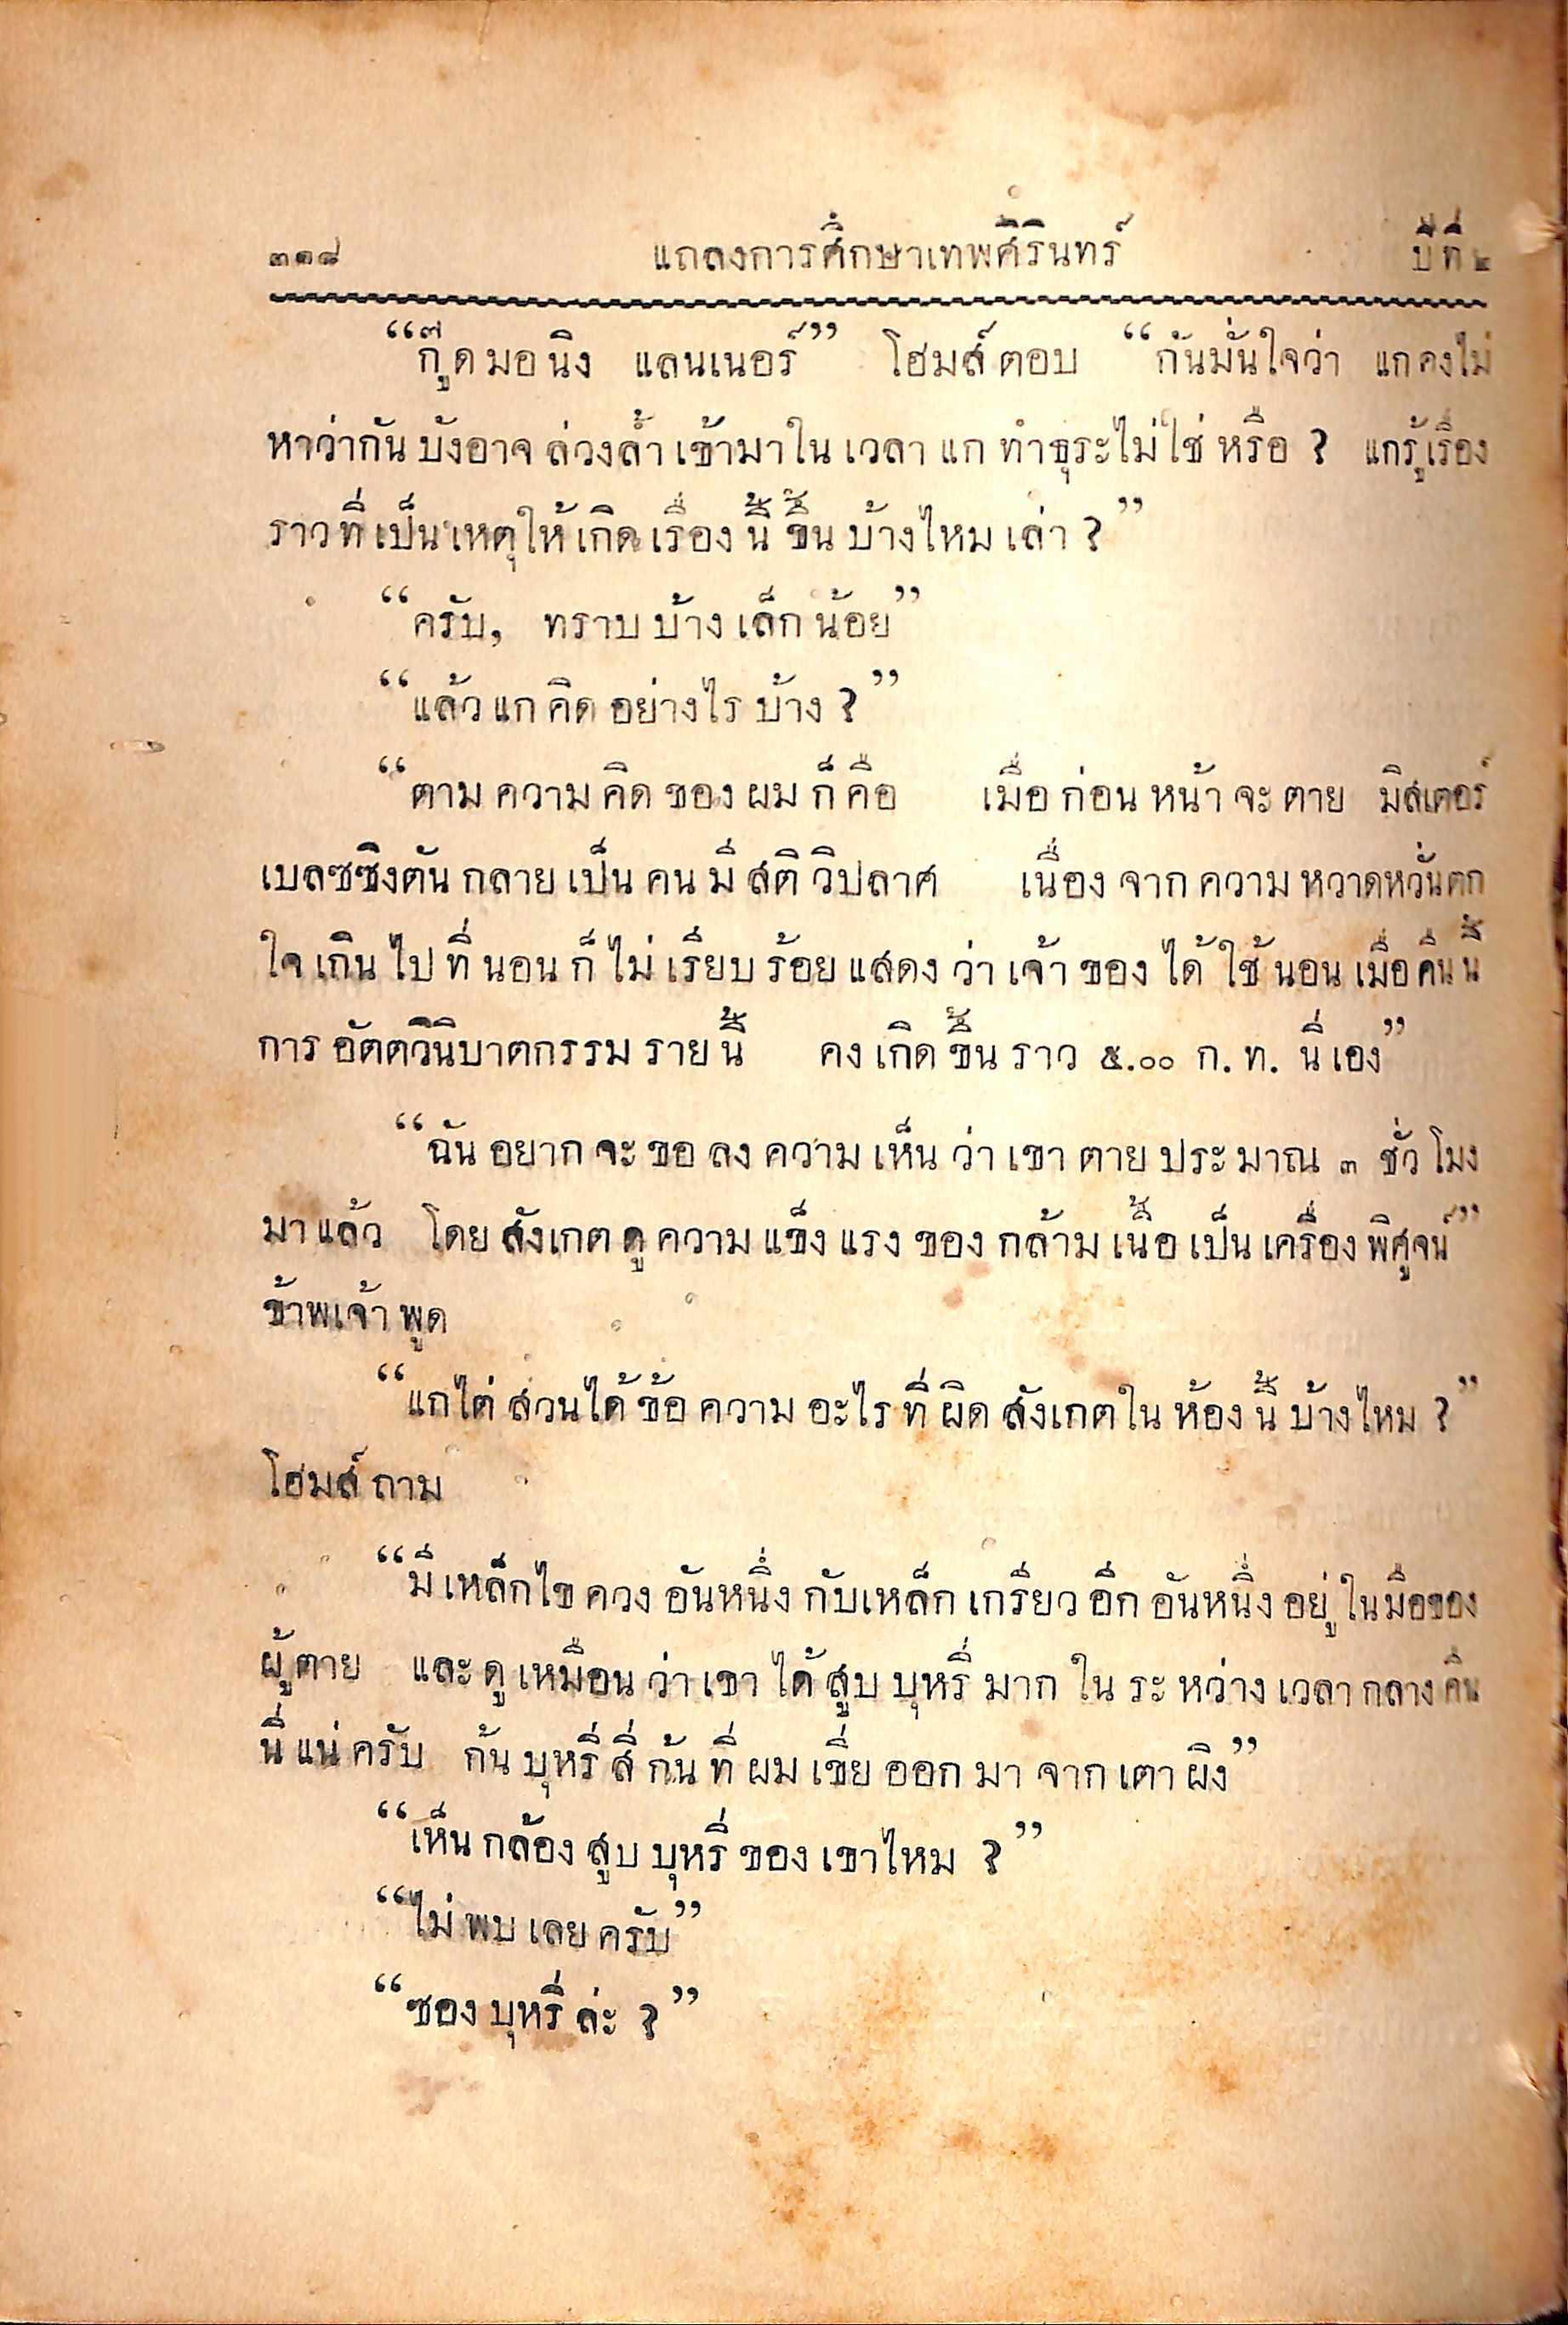 ๓๑๘ แถลงการศึกษาเทพศิรินทร์ ปีที่ ๒
“กู๊ดมอนิง แลนเนอร์” โฮมส์ตอบ “กันมั่นใจว่า แกคงไม่
หาว่ากันบังอาจล่วงล้ำเข้ามาในเวลาแกทำธุระไม่ใช่หรือ ? แกรู้เรื่อง
ราวที่เป็นเหตุให้เกิดเรื่องนี้ขึ้นบ้างไหมเล่า ?”
“ครับ, ทราบบ้างเล็กน้อย”
“แล้วแกคิดอย่างไรบ้าง ?”
“ตามความคิดของผมก็คือ เมื่อก่อนหน้าจะตาย มิสเตอร์
เบลซซิงตันกลายเป็นคนมีสติวิปลาศ เนื่องจากความหวาดหวั่นตก
ใจเกินไปที่นอนก็ไม่เรียบร้อยแสดงว่าเจ้าของได้ใช้นอนเมื่อคืนนี้
การอัตตวินิบาตกรรมรายนี้ คงเกิดขึ้นราว ๕.๐๐ ก.ท. นี่เอง”
“ฉันอยากจะขอลงความเห็นว่าเขาตายประมาณ ๓ ชั่วโมง
มาแล้ว โดยสังเกตดูความแข็งแรงของกล้ามเนื้อเป็นเครื่องพิศูจน์”
ข้าพเจ้าพูด
“แกไต่สวนได้ข้อความอะไรที่ผิดสังเกตในห้องนี้บ้างไหม ?”
โฮมส์ถาม
“มีเหล็กไขควงอันหนึ่งกับเหล็กเกรียวอีกอันหนึ่งอยู่ในมือของ
ผู้ตาย และดูเหมือนว่าเขาได้สูบบุหรี่มากในระหว่างเวลากลางคืน
นี่แน่ครับ ก้นบุหรี่สี่ก้นที่ผมเขี่ยออกมาจากเตาผิง”
“เห็นกล้องสูบบุหรี่ของเขาไหม ?”
“ไม่พบเลยครับ”
“ซองบุหรี่ล่ะ ?”